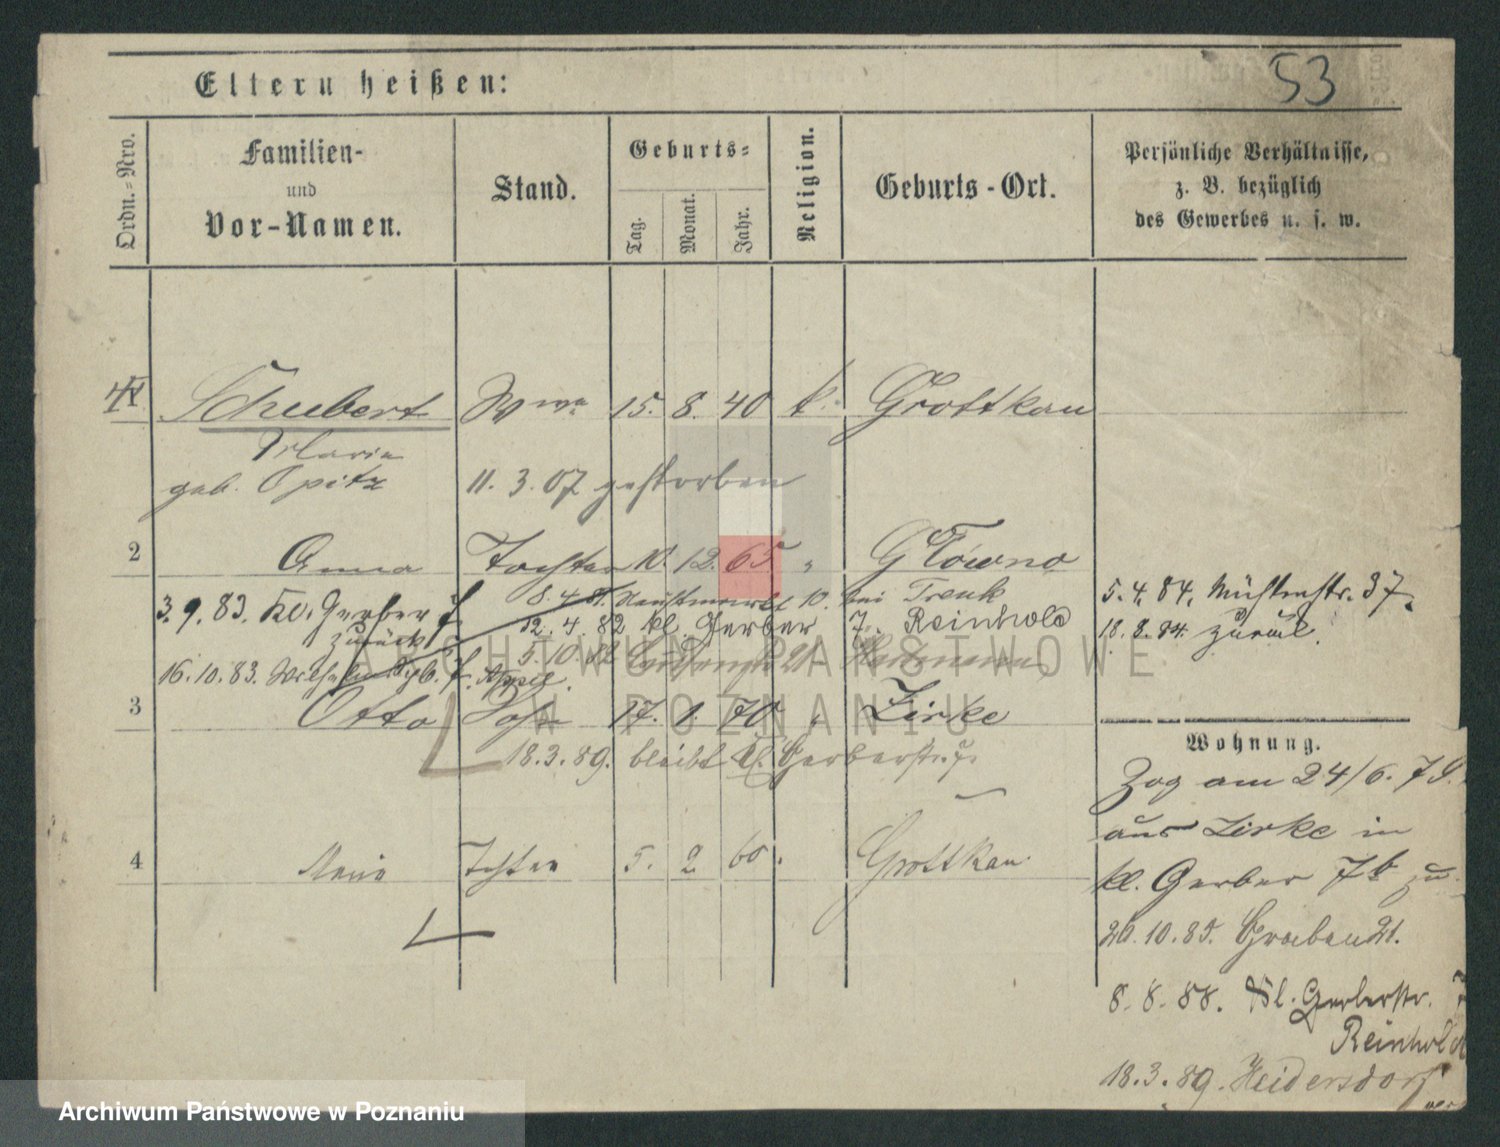 Eltern heißen:
53
Ordn.-Nro.
Familien-
und
Vor-Namen.
Stand.
Geburts-
Tag.
Monat.
Jahr.
Religion.
Geburts-Ort.
Persönliche Verhältnisse,
z. B. bezüglich
des Gewerbes u. s. w.
Schubert Wwe 15. 8. 40 k. Grottkau
Maria
geb. Opitz 11. 3. 07 gestorben
2 Anna Tochter 10. 12. 65. " Główno
3. 9. 83. Kl. Gerber 8. 4. 81. 10. bei Trenk
5. 4. 84. Mühlenstr. 37.
zurück 12. 4. 82 kl. Gerber 7. Reinhold
18. 8. 84. zurück.
16. 10. 83. 5. 10. 82 21. Hartmann
3 Otto Sohn 17. 1. 70 " Zirke
18. 3. 89. bleibt Kl. Gerberstr. 7.
4 Marie Tochter 5. 2 60. Grottkau
Wohnung.
Zog am 24/6. 79.
aus Zirke in
kl. Gerber 7b zu
20. 10. 85. Graben 21.
8. 8. 88. Kl. Gerberstr. 7
Reinhold
18. 3. 89. Heidersdorf
ARCHIWUM PAŃSTWOWE
W POZNANIU
Archiwum Państwowe w Poznaniu